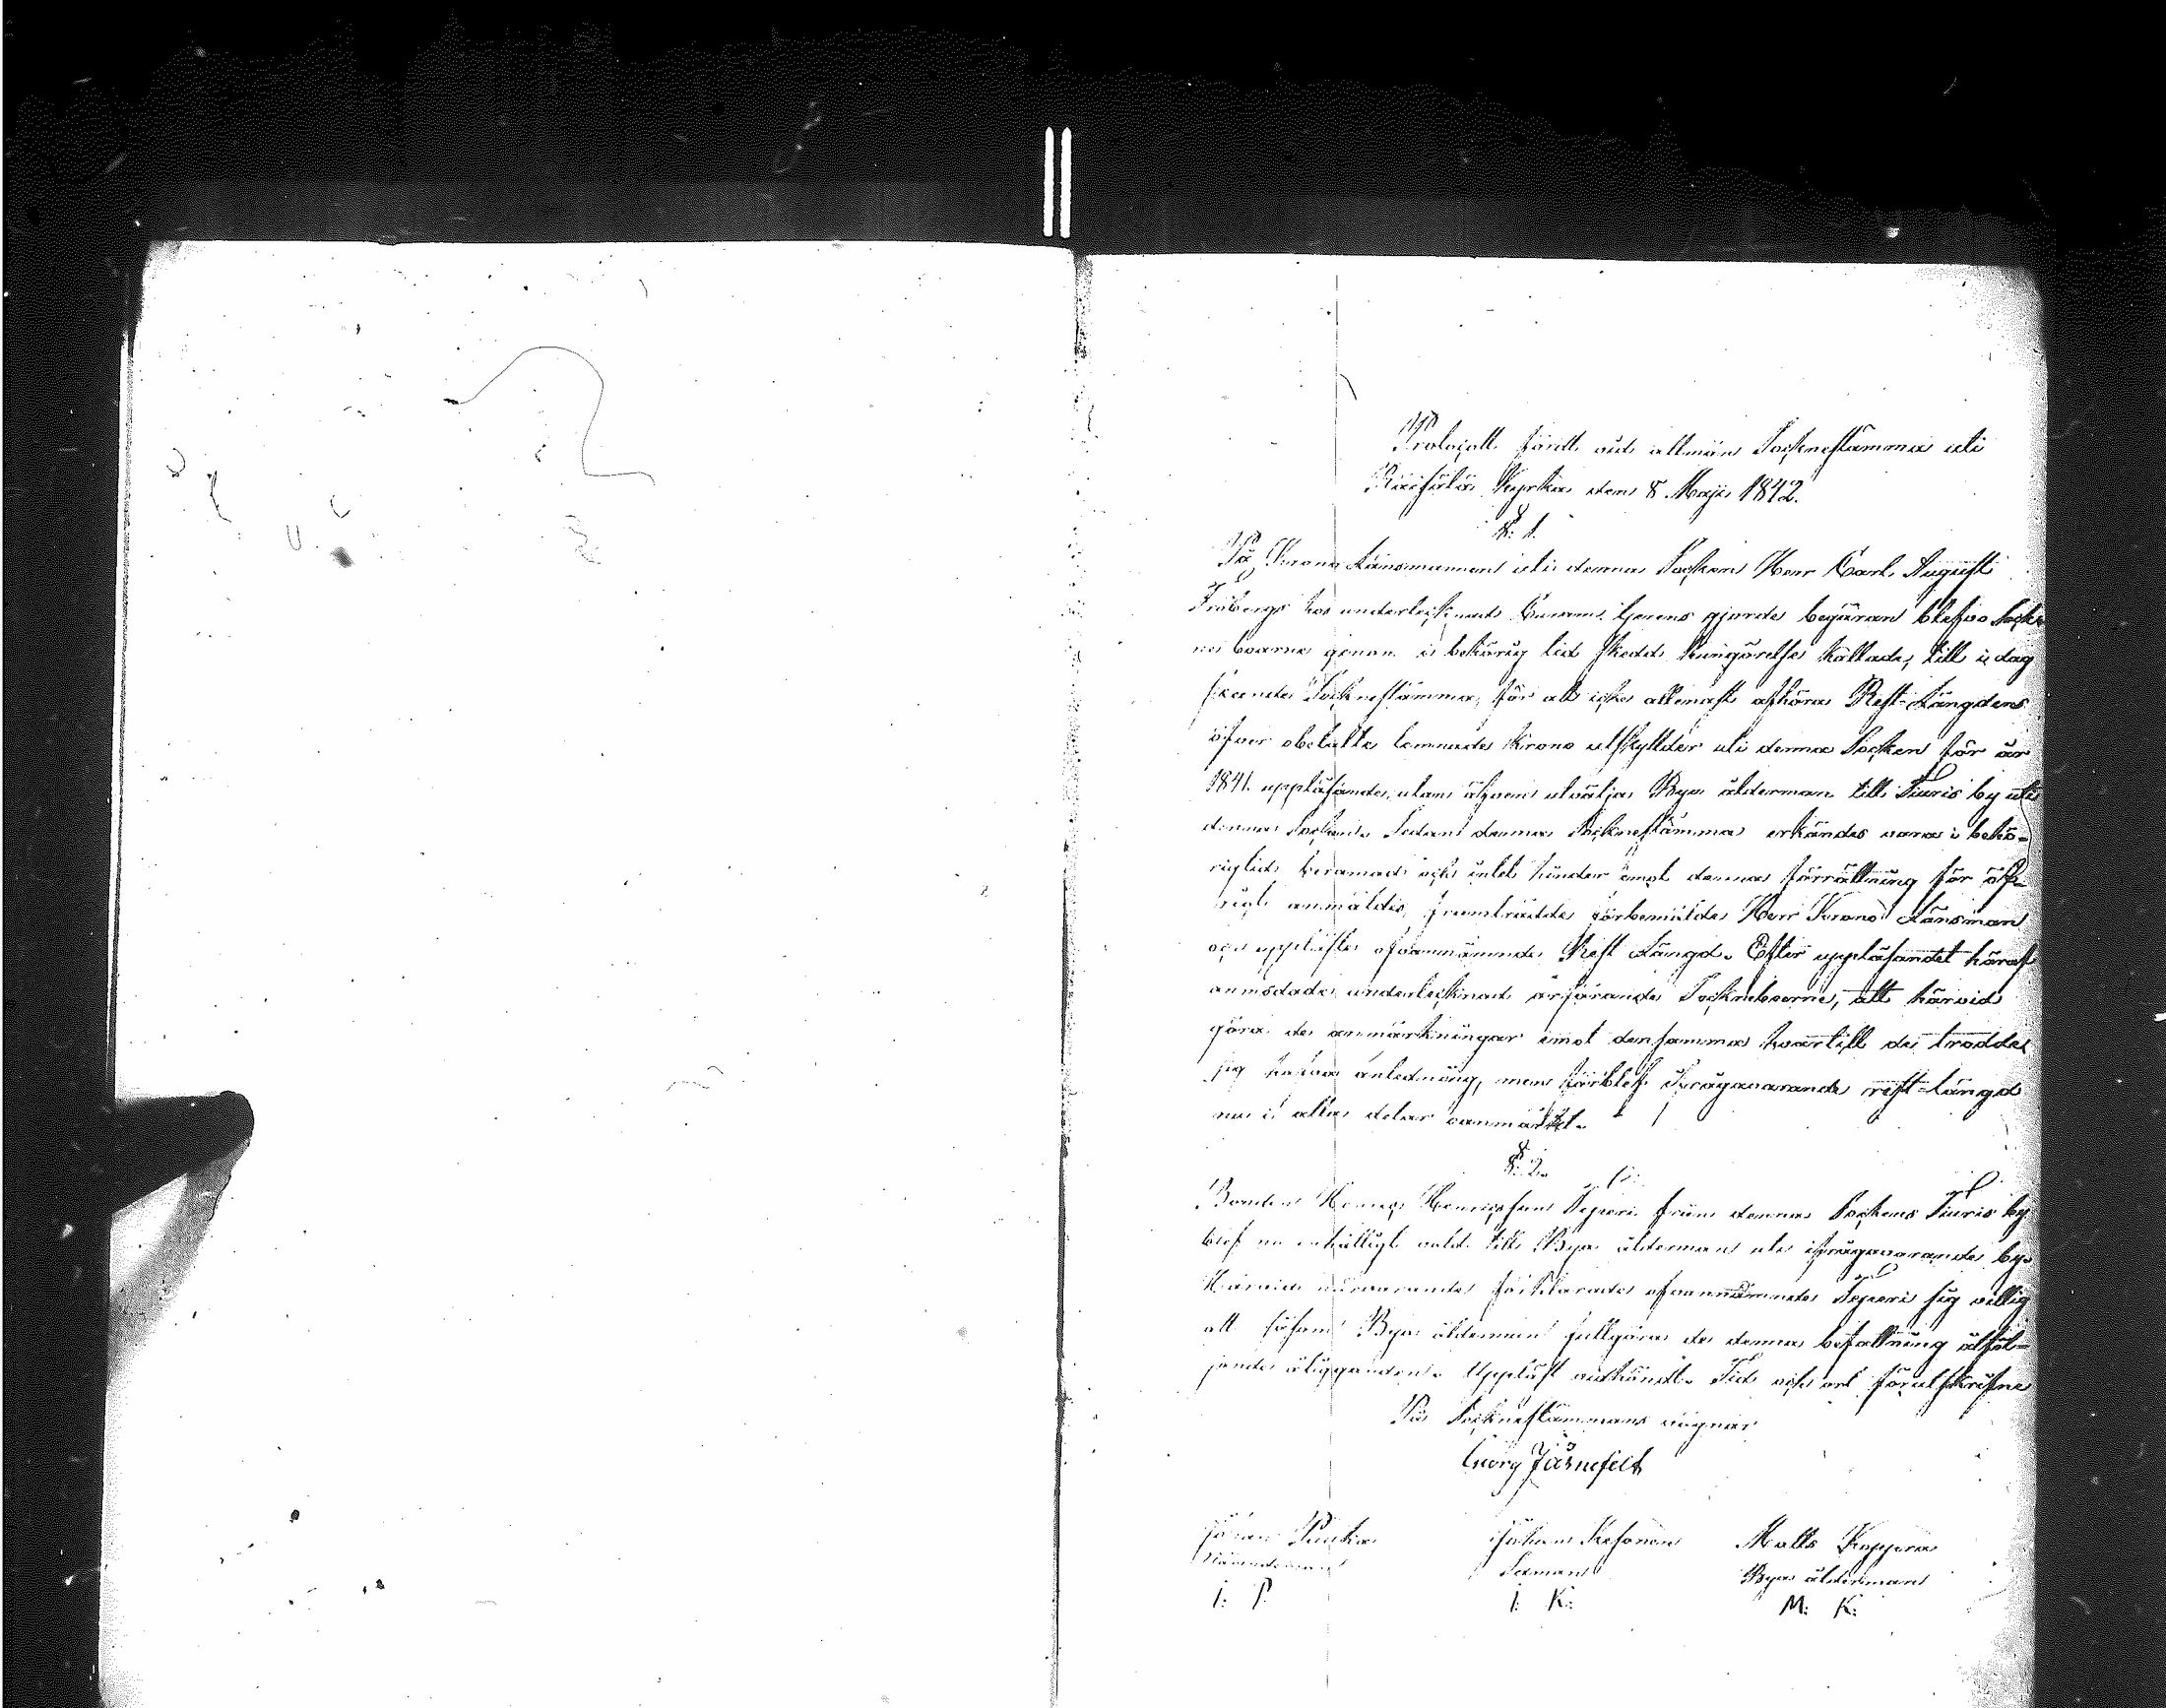 Protocoll fördt vid allmän Socknestämma uti
Räisälä Kyrka den 8 Maji 1842.
§: 1.
På Krono Länsmannen uti denna Socken Herr Carl August
Fribergs hos undertecknad gjorde begäran blefvo Sock-
ne boarne genom i behörig tid skedd kungörelse kallade, till i dag
skeende Sockne stämma, för att icke allenast afhöra Rest-Längdens
öfver obetalte lemnade Krono utskylder uti denna Socken för år
1841 uppläsande, utan äfven utvälja Bya ålderman till Tiuris by uti
denna Socken. Sedan denna Sockne stämma erkändes vara i behö-
rig tid beramad och intet hinder emot denna förrättning för öf-
rigt anmäldes, framträdde förbemälde Herr Krono Länsman
och uppläste ofvannämnde Rest Längd. Efter uppläsandet häraf
anmodade undertecknad Sockneboerne, att härvid
göra de anmärkningar emot densamma hvartill de trodde
sig hafva anledning, men härblef ifrågavarande rest-längd
nu i alla delar oanmärkt.
§: 2.
Bonden Henric Henricsson Teperi från denna Sockens Tiuris by
blef nu enhälligt vald till Bya ålderman uti ifrågavarande by.
Härvid närvarande förklarade ofvannämnde Teperi sig villig
att såsom Bya ålderman fullgöra de denna befattning åtföl-
jande åligganden. Uppläst vidkändt. Tid och ort förutskrifne
På Sockne stämmans vägnar
Georg Järnefelt
Göran Pukka Johan Kesonen Matts Kuppara
Nämndeman Sexman Bya ålderman
I: P. I: K: M: K: